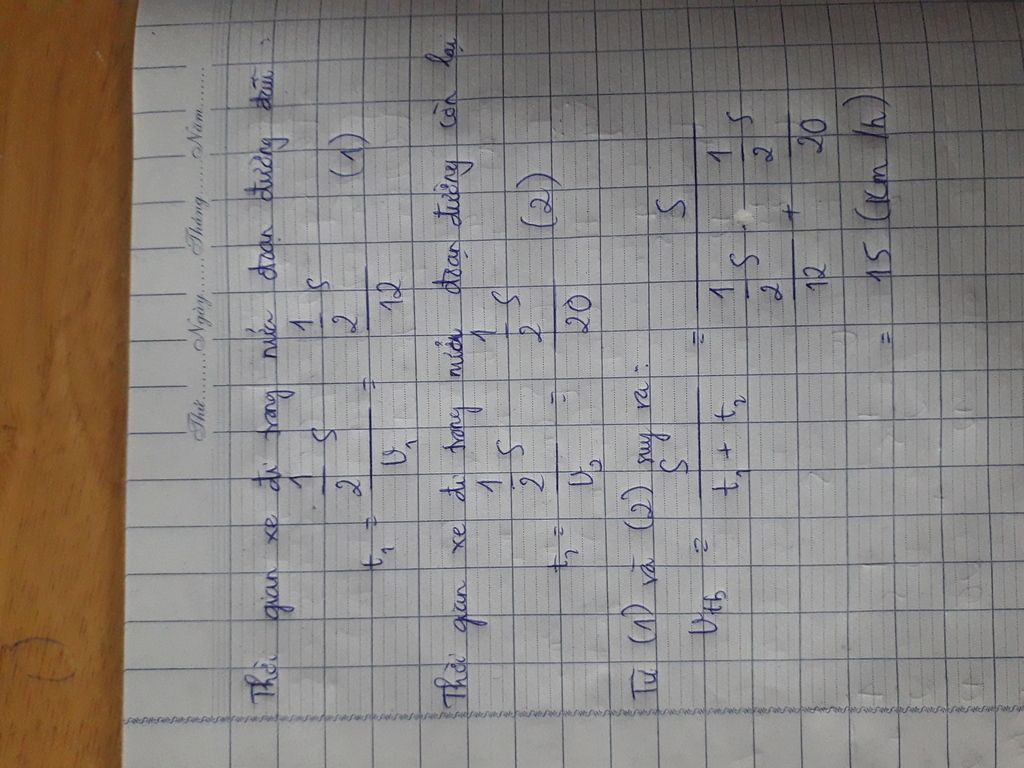 Thứ.........Ngày.......Tháng.........Năm.........
Thời gian xe đi trong nửa đoạn đường đầu :
t₁ = (1/2 S)/V₁ = (1/2 S)/12 (1)
Thời gian xe đi trong nửa đoạn đường còn lại
t₂ = (1/2 S)/V₂ = (1/2 S)/20 (2)
Từ (1) và (2) suy ra:
Vtb = S/(t₁ + t₂) = S/((1/2 S)/12 + (1/2 S)/20)
= 15 (km/h)